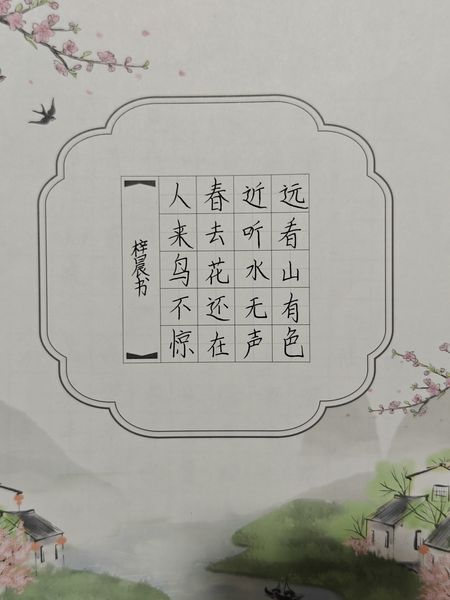 远看山有色
近听水无声
春去花还在
人来鸟不惊
梓晨书